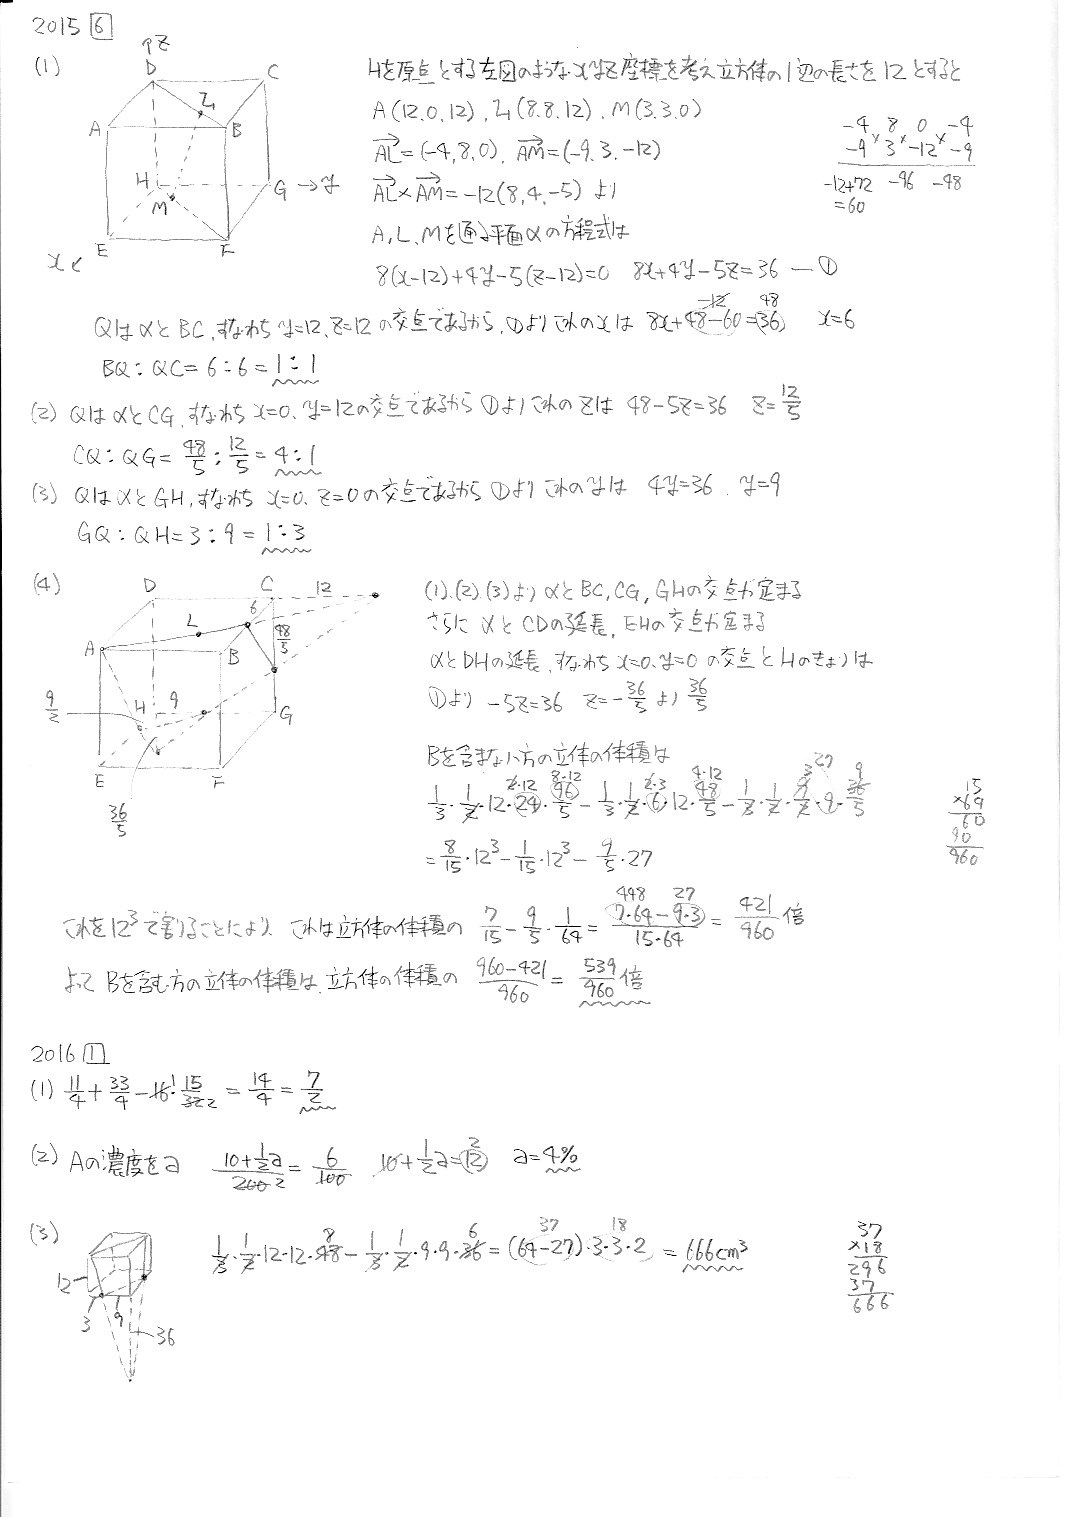 2015 6
(1)
Hを原点とする左図のようなxyz座標を考え立方体の1辺の長さを12とすると
A(12,0,12), L(8,8,12), M(3,3,0)
AL=(-4,8,0), AM=(-9,3,-12)
AL×AM=-12(8,4,-5)より
A,L,Mを通る平面αの方程式は
8(x-12)+4y-5(z-12)=0 8x+4y-5z=36 ―①
-4 8 0 -4
-9 3 -12 -9
-12+72 -96 -48
=60
↑z
D C
L
A B
H G →y
M
E F
x↙
QはαとBC,すなわちy=12,z=12の交点であるから,①よりこれのxは 8x+48-60=36 x=6
-12 48
BQ:QC=6:6=1:1
(2) QはαとCG,すなわちx=0,y=12の交点であるから①よりこれのzは 48-5z=36 z=12/5
CQ:QG=48/5:12/5=4:1
(3) QはαとGH,すなわちx=0,z=0の交点であるから①よりこれのyは 4y=36, y=9
GQ:QH=3:9=1:3
(4)
D C 12
L 6
A B 48/5
9/2 H 9 G
E F
36/5
(1),(2),(3)よりαとBC,CG,GHの交点が定まる
さらにαとCDの延長,EHの交点が定まる
αとDHの延長,すなわちx=0,y=0の交点とHのきょりは
①より -5z=36 z=-36/5より36/5
Bを含まない方の立体の体積は
1/3・1/2・12・24・96/5-1/3・1/2・6・12・48/5-1/3・1/2・9/2・9・36/5
2・12 8・12 2・3 4・12 3 27 9
=8/15・12³-1/15・12³-9/5・27
15
×64
60
90
960
これを12³で割ることにより,これは立方体の体積の 7/15-9/5・1/64=(7・64-9・3)/(15・64)=421/960倍
448 27
よってBを含む方の立体の体積は,立方体の体積の (960-421)/960=539/960倍
2016 1
(1) 11/4+33/4-16・15/32=14/4=7/2
1 2
(2) Aの濃度をa (10+1/2a)/200=6/100 10+1/2a=12 a=4%
2 2
(3)
12
3 9
36
1/3・1/2・12・12・48-1/3・1/2・9・9・36=(64-27)・3・3・2=666cm³
8 6 37 18
37
×18
296
37
666